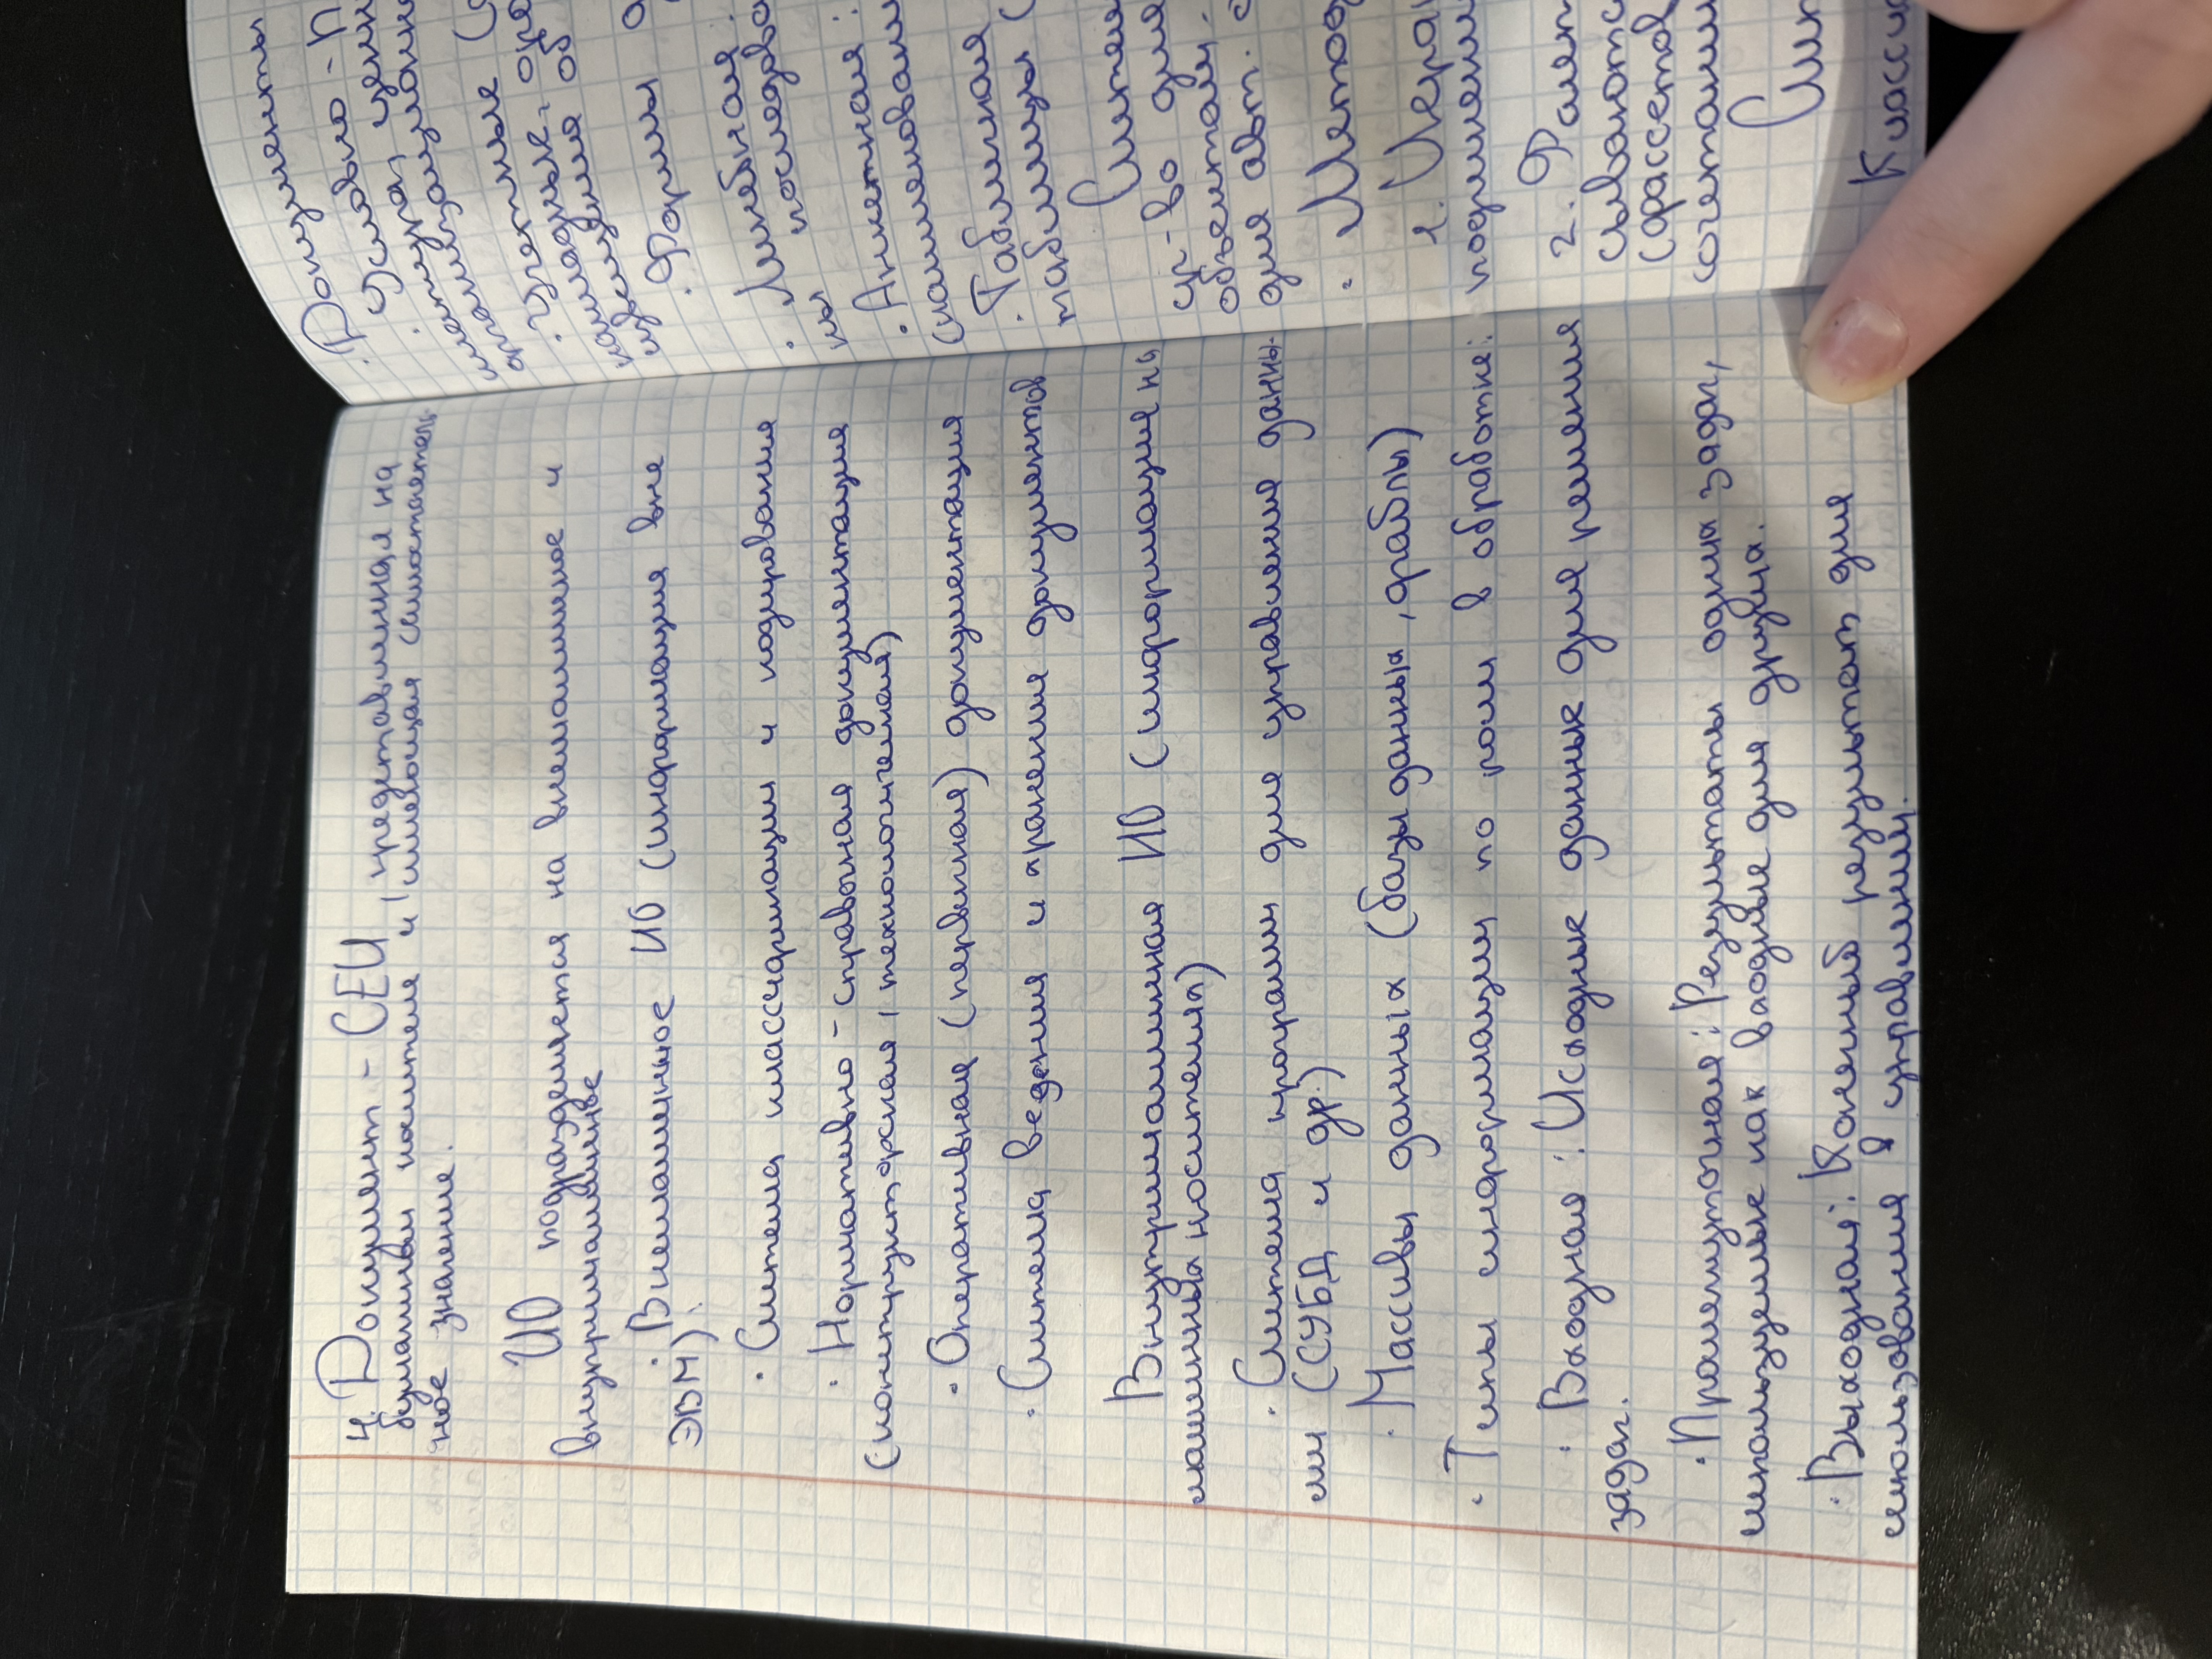 4. Документ - СЕИ, представленная на
бумажном носителе и имеющая самостоятель-
ное значение.
ИО подразделяется на внемашинное и
внутримашинное
· Внемашинное ИО (информация вне
ЭВМ).
· Система классификации и кодирования
· Нормативно-справочная документация
(конструкторская, технологическая)
· Оперативная (первичная) документация
· Система ведения и хранения документов
Внутримашинная ИО (информация на
машинных носителях)
· Система программ для управления данны-
ми (СУБД и др.)
· Массивы данных (базы данных, файлы)
· Типы информации по роли в обработке:
· Входная: Исходные данные для решения
задач.
· Промежуточная: Результаты одних задач,
используемые как входные для других.
· Выходная: Конечный результат для
использования в управлении.
Документы
· Условно-п
· Усло
· Формы
· Линейная:
последова
ны
· Анкетная:
(наименовани
· Табличная
таблицы (
Систем
ср-во для
объектам.
для авт.
· Метод
1. Иерар
подчинени
2. Фасет
(фасетов
сочетании
Сис
Класси